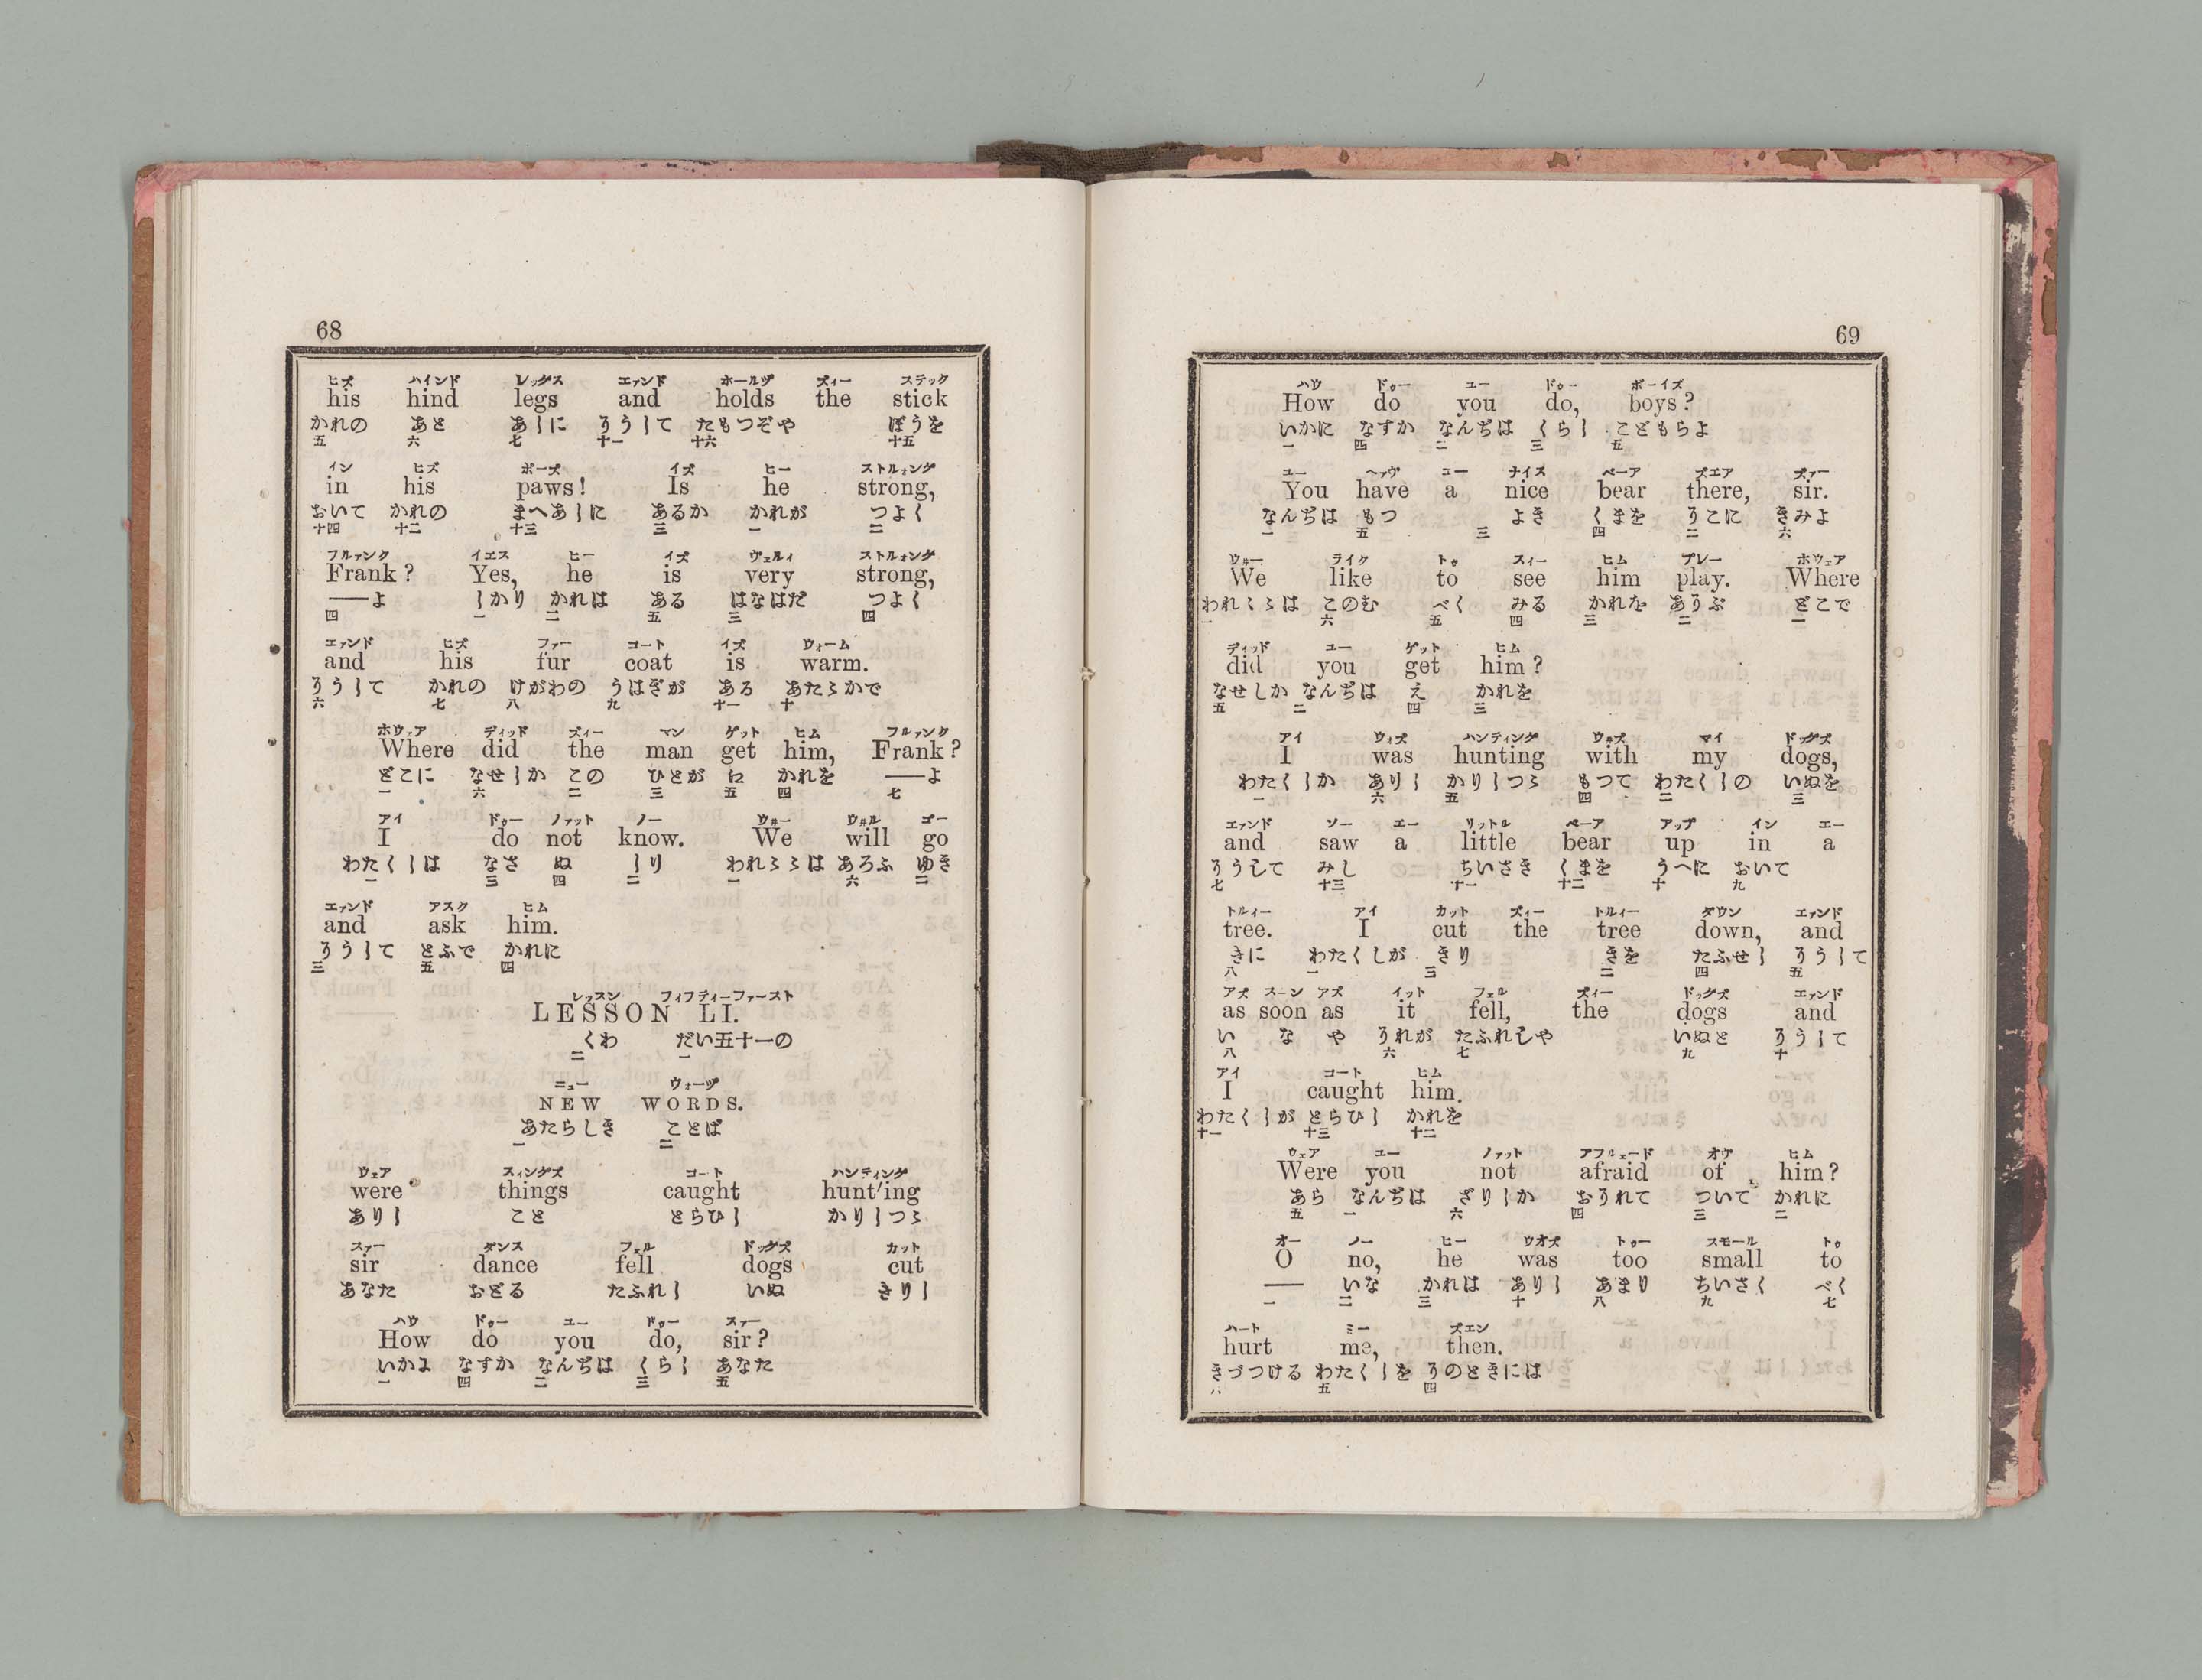 68
ヒズ ハインド レッグス エァンド ホールヅ ズィー ステック
his hind legs and holds the stick
かれの あと あしに そうして たもつぞや ぼうを
五 六 七 十一 十六 十五
イン ヒズ ポーズ イズ ヒー ストルォング
in his paws! Is he strong,
おいて かれの まへあしに あるか かれが つよく
十四 十二 十三 三 一 二
フルァンク イエス ヒー イズ ヴェルィ ストルォング
Frank? Yes, he is very strong,
——よ しかり かれは ある はなはだ つよく
四 一 二 五 三 四
エァンド ヒズ ファー コート イズ ウォーム
and his fur coat is warm.
そうして かれの けがわの うはぎが ある あたゝかで
六 七 八 九 十一 十
ホウェア ディッド ズィー マン ゲット ヒム フルァンク
Where did the man get him, Frank?
どこに なせしか この ひとが え かれを ——よ
一 六 二 三 五 四 七
アイ ドゥー ノァット ノー ウ井ー ウ井ル ゴー
I do not know. We will go
わたくしは なさ ぬ しり われゝゝは あろふ ゆき
一 三 四 二 一 六 二
エァンド アスク ヒム
and ask him.
そうして とふで かれに
三 五 四
レッスン フィフティーファースト
LESSON LI.
くわ だい五十一の
二 一
ニュー ウォーヅ
NEW WORDS.
あたらしき ことば
一 二
ウェア スィングズ コート ハンティング
were things caught hunt′ing
ありし こと とらひし かりしつゝ
スァー ダンス フェル ドッグズ カット
sir dance fell dogs cut
あなた おどる たふれし いぬ きりし
ハウ ドゥー ユー ドゥー スァー
How do you do, sir?
いかよ なすか なんぢは くらし あなた
一 四 二 三 五
69
ハウ ドゥー ユー ドゥー ボーイズ
How do you do, boys?
いかに なすか なんぢは くらし こどもらよ
一 四 二 三 五
ユー ヘァヴ エー ナイス ベーア ズエア スァー
You have a nice bear there, sir.
なんぢは もつ よき くまを そこに きみよ
一 五 三 四 二 六
ウ井ー ライク トゥ スィー ヒム プレー ホウェア
We like to see him play. Where
われゝゝは このむ べく みる かれを あそぶ どこで
一 六 五 四 三 二 一
ディッド ユー ゲット ヒム
did you get him?
なせしか なんぢは え かれを
五 二 四 三
アイ ウォズ ハンティング ウ井ズ マイ ドッグズ
I was hunting with my dogs,
わたくしか ありし かりしつゝ もつて わたくしの いぬを
一 六 五 四 二 三
エァンド ソー エー リットル ベーア アップ イン エー
and saw a little bear up in a
そうして みし ちいさき くまを うへに おいて
七 十三 十一 十二 十 九
トルィー アイ カット ズィー トルィー ダウン エァンド
tree. I cut the tree down, and
きに わたくしが きり きを たふせし そうして
八 一 三 二 四 五
アズ スーン アズ イット フェル ズィー ドッグズ エァンド
as soon as it fell, the dogs and
い な や それが たふれしや いぬと そうして
八 六 七 九 十
アイ コート ヒム
I caught him.
わたくしが とらひし かれを
十一 十三 十二
ウェア ユー ノァット アフルェード オヴ ヒム
Were you not afraid of him?
あら なんぢは ざりしか おそれて ついて かれに
五 一 六 四 三 二
オー ノー ヒー ウオズ トゥー スモール トゥ
O no, he was too small to
—— いな かれは ありし あまり ちいさく べく
一 二 三 十 八 九 七
ハート ミー ズエン
hurt me, then.
きづつける わたくしを そのときには
六 五 四